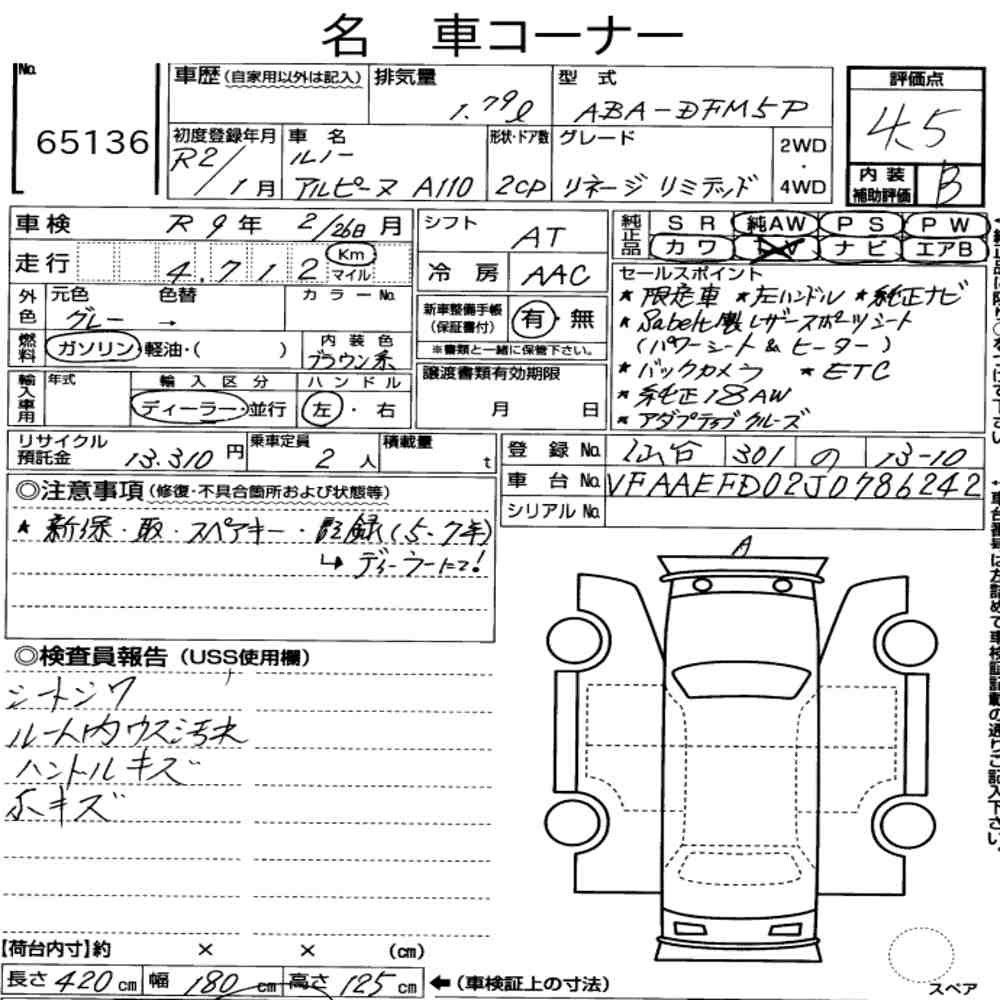 名 車コーナー
No.
65136
車歴(自家用以外は記入)
排気量
1.79ℓ
型 式
ABA-DFM5P
評価点
4.5
初度登録年月
R2/1月
車 名
ルノー
アルピーヌ A110
形状・ドア数
2CP
グレード
リネージ リミテッド
2WD
・
4WD
内 装
補助評価
B
車検
R 9年 2/26日月
走行
4.712
Km
マイル
外色
元色
グレー →
色替
カラーNo.
燃料
ガソリン・軽油・( )
内装色
ブラウン系
輸入車用
年式
輸入区分
ディーラー・並行
ハンドル
左・右
シフト
AT
冷房
AAC
新車整備手帳
(保証書付)
有・無
※書類と一緒に保管下さい。
譲渡書類有効期限
月 日
純正品
SR 純AW PS PW
カワ TV ナビ エアB
セールスポイント
★限定車 ★左ハンドル ★純正ナビ
★Sabelt製レザースポーツシート
(パワーシート & ヒーター)
★バックカメラ ★ETC
★純正18AW
★アダプティブクルーズ
リサイクル
預託金
13.310円
乗車定員
2人
積載量
t
登録No.
仙台 301 の 13-10
車台No.
VFAAEFD02J0786242
シリアルNo.
◎注意事項(修復・不具合箇所および状態等)
★新保・取・スペアキー・記録(5.7年)
↳ディーラーにて!
A
◎検査員報告(USS使用欄)
シートシワ
ルーム内ウス汚れ
ハンドルキズ
小キズ
【荷台内寸】約 × × (cm)
長さ420cm 幅180cm 高さ125cm
←(車検証上の寸法)
スペア